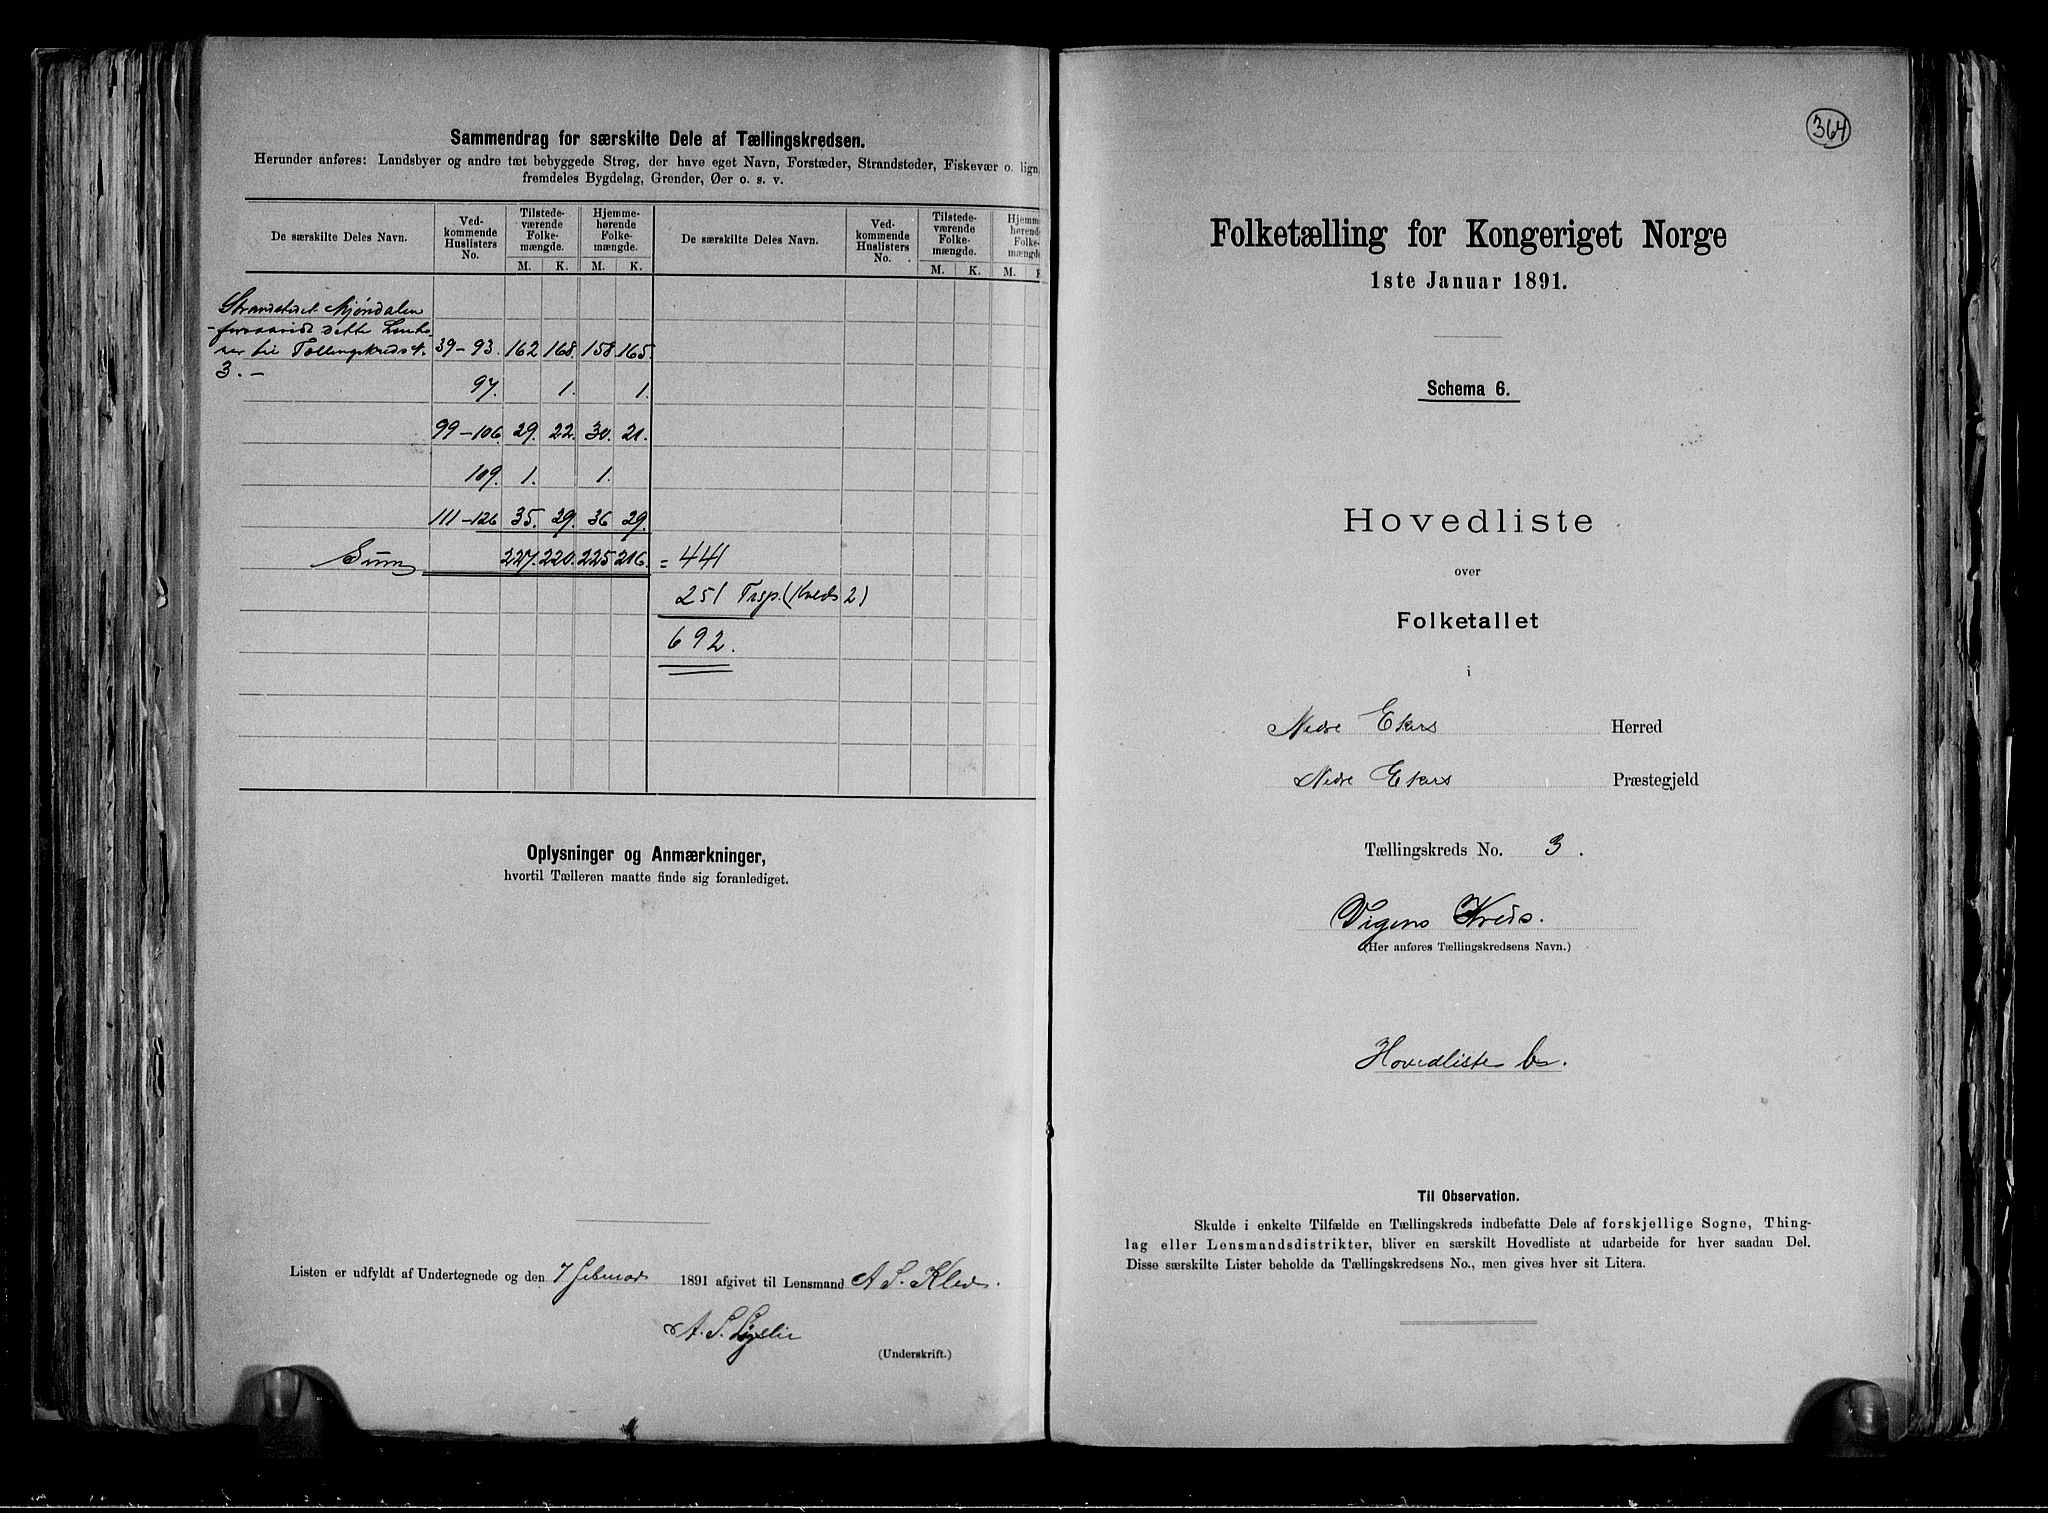 Sammendrag for særskilte Dele af Tællingskredsen.
Herunder anføres: Landsbyer og andre tæt bebyggede Strøg, der have eget Navn, Forstæder, Strandsteder, Fiskevær o. lign.
fremdeles Bygdelag, Grender, Øer o. s. v.
De særskilte Deles Navn. Ved-kommende Huslisters No. Tilstede-værende Folke-mængde. Hjemme-hørende Folke-mængde. De særskilte Deles Navn. Ved-kommende Huslisters No. Tilstede-værende Folke-mængde. Hjemme-hørende Folke-mængde
M. K. M. K. M. K. M. K
Strandstedet Mjøndalen
forsaavidt dette
til Tællingskreds N. 39-93. 162 168. 158. 165.
3. —
97. 1. 1.
99-106. 29. 22. 30. 21.
109. 1. 1.
111-126 35. 29. 36 29.
Sum 227. 220. 225 216. = 441
251 Trsp. (Kreds 2)
692.
Oplysninger og Anmærkninger,
hvortil Tælleren maatte finde sig foranlediget.
Listen er udfyldt af Undertegnede og den 7 Februar 1891 afgivet til Lensmand A. S. Klev.
A. S. Lyslie
(Underskrift.)
364
Folketælling for Kongeriget Norge
1ste Januar 1891.
Schema 6.
Hovedliste
over
Folketallet
i
Nedre Ekers Herred
Nedre Ekers Præstegjeld
Tællingskreds No. 3.
Vigens Kreds.
(Her anføres Tællingskredsens Navn.)
Hovedliste b.
Til Observation.
Skulde i enkelte Tilfælde en Tællingskreds indbefatte Dele af forskjellige Sogne, Thing-
lag eller Lensmandsdistrikter, bliver en særskilt Hovedliste at udarbeide for hver saadan Del.
Disse særskilte Lister beholde da Tællingskredsens No., men gives hver sit Litera.